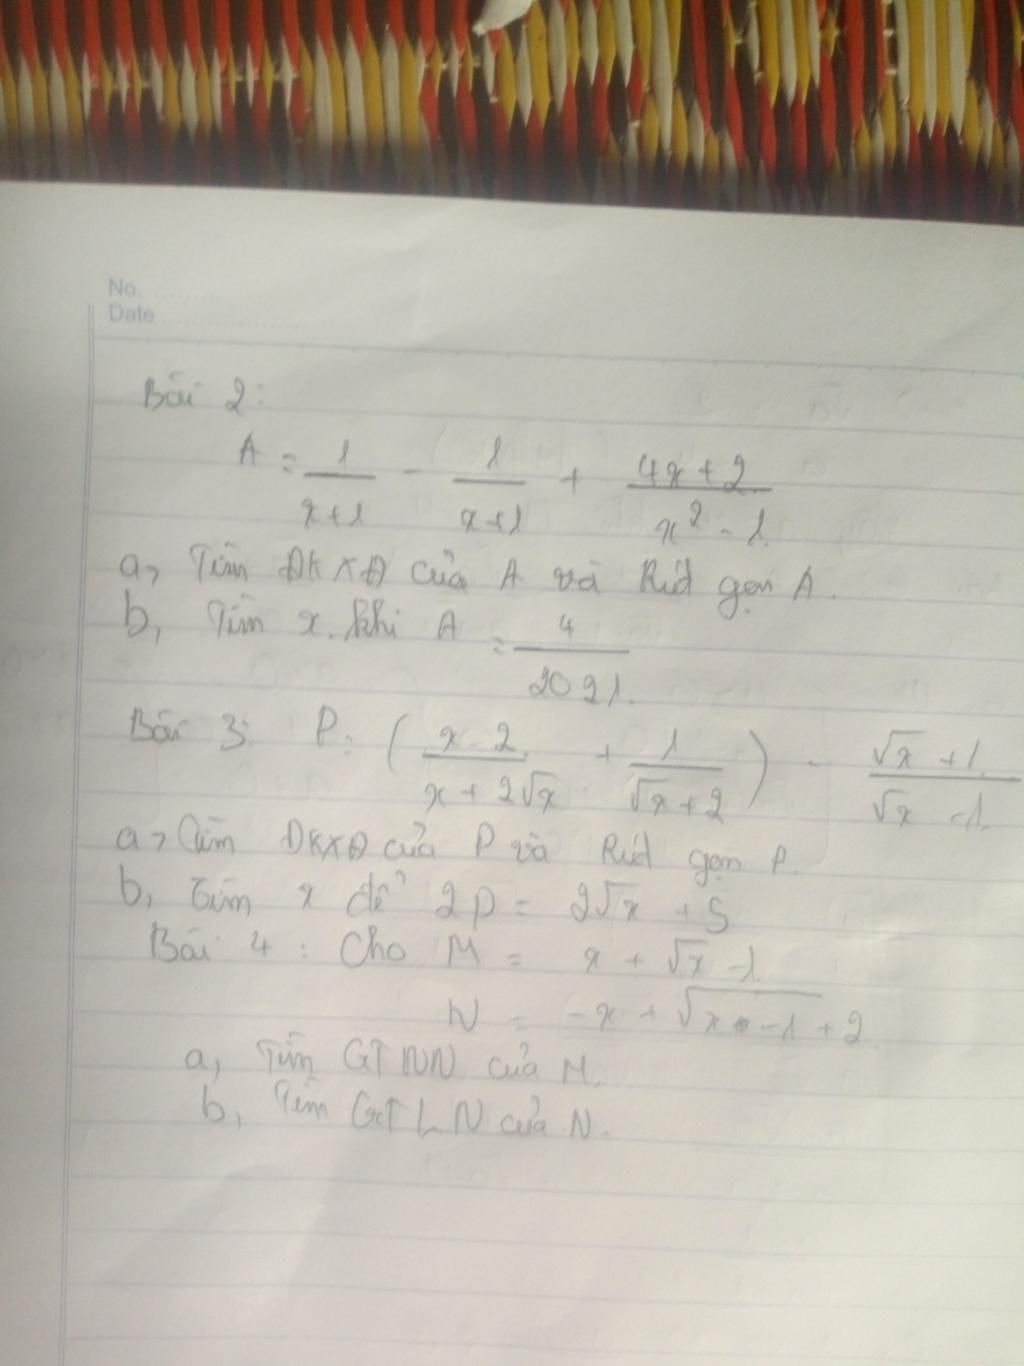 No.
Date
Bài 2:
A = 1/(x+1) - 1/(x+1) + (4x+2)/(x² - 1)
a, Tìm ĐKXĐ của A và Rút gọn A.
b, Tìm x khi A = 4/2021.
Bài 3: P = ( (x-2)/(x+2√x) + 1/(√x+2) ) · (√x+1)/(√x-1)
a, Tìm ĐKXĐ của P và Rút gọn P.
b, Tìm x để 2P = 2√x + 5
Bài 4: Cho M = x + √x - 1
N = -x + √(x-1) + 2
a, Tìm GTNN của M.
b, Tìm GTLN của N.